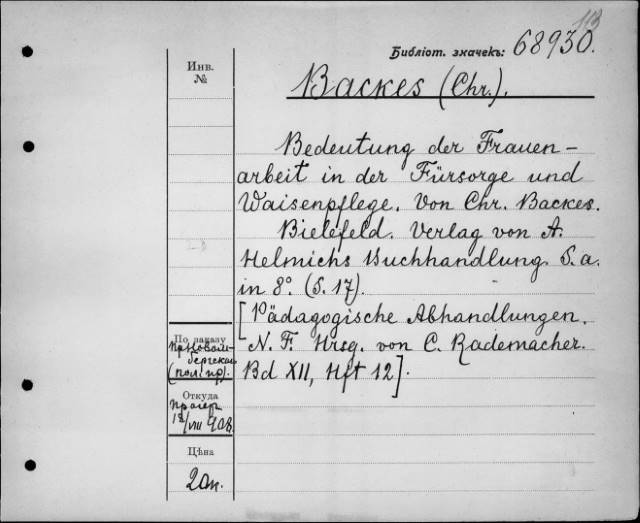 113
Библіот. значекъ: 68930.
Backes (Chr.).
Bedeutung der Frauen-
arbeit in der Fürsorge und
Waisenpflege. Von Chr. Backes.
Bielefeld. Verlag von A.
Helmichs Buchhandlung S. a.
in 8°. (S. 17).
[Pädagogische Abhandlungen.
N. F. Hrsg. von C. Rademacher.
Bd XII, Hft 12].
Инв.
№
По заказу
(пол. пр).
Откуда
18/VIII 908.
Цѣна
20 пф.